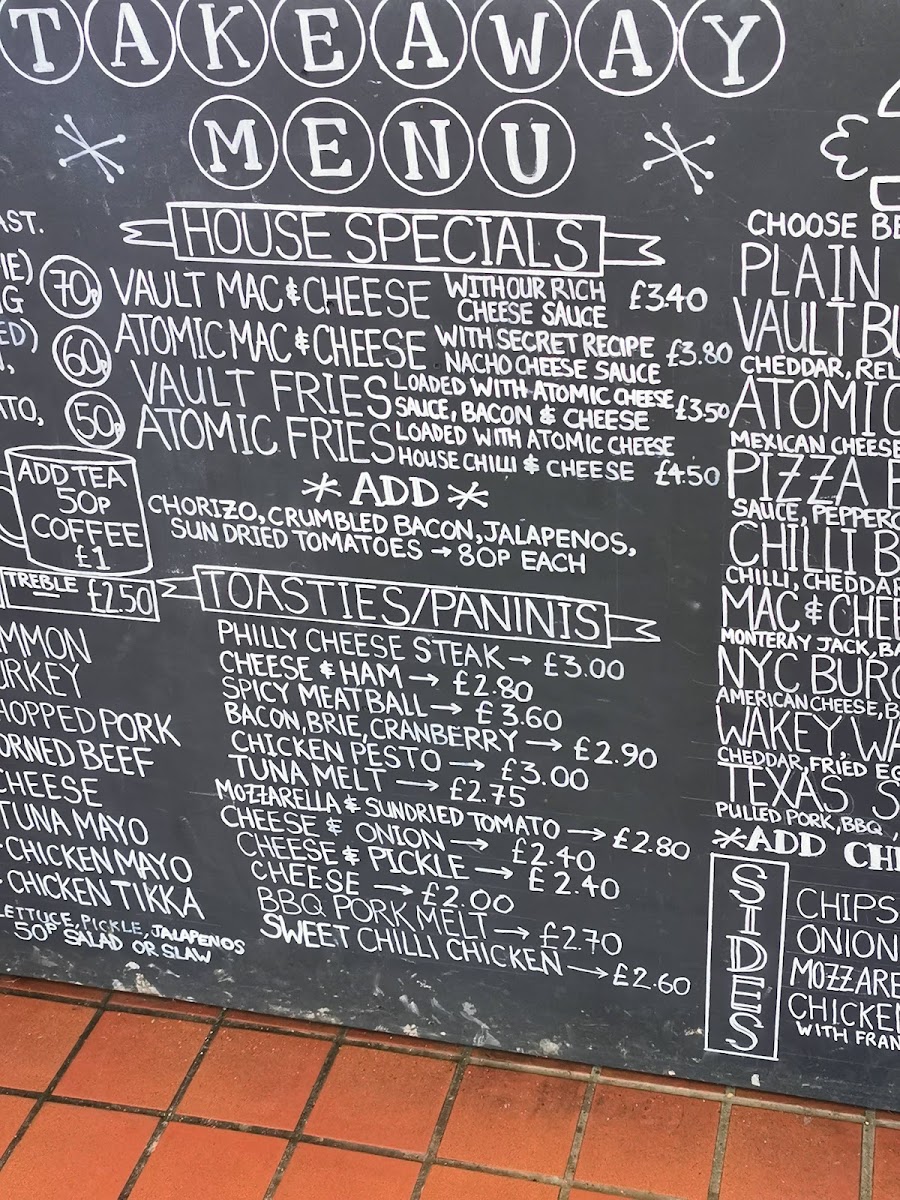 TAKEAWAY
MENU
AST.
IE)
NG
ED)
ATO,
70P
60P
50P
ADD TEA
50P
COFFEE
£1
TREBLE £2.50
MMON
URKEY
HOPPED PORK
ORNED BEEF
CHEESE
TUNA MAYO
CHICKEN MAYO
CHICKEN TIKKA
LETTUCE, PICKLE, JALAPENOS
50P SALAD OR SLAW
HOUSE SPECIALS
VAULT MAC & CHEESE WITH OUR RICH
CHEESE SAUCE £3.40
ATOMIC MAC & CHEESE WITH SECRET RECIPE
NACHO CHEESE SAUCE £3.80
VAULT FRIES LOADED WITH ATOMIC CHEESE
SAUCE, BACON & CHEESE £3.50
ATOMIC FRIES LOADED WITH ATOMIC CHEESE
HOUSE CHILLI & CHEESE £4.50
* ADD *
CHORIZO, CRUMBLED BACON, JALAPENOS,
SUN DRIED TOMATOES → 80P EACH
TOASTIES/PANINIS
PHILLY CHEESE STEAK → £3.00
CHEESE & HAM → £2.80
SPICY MEATBALL → £3.60
BACON, BRIE, CRANBERRY → £2.90
CHICKEN PESTO → £3.00
TUNA MELT → £2.75
MOZZARELLA & SUNDRIED TOMATO → £2.80
CHEESE & ONION → £2.40
CHEESE & PICKLE → £2.40
CHEESE → £2.00
BBQ PORK MELT → £2.70
SWEET CHILLI CHICKEN → £2.60
CHOOSE BE
PLAIN
VAULT BU
CHEDDAR, REL
ATOMIC
MEXICAN CHEESE
PIZZA B
SAUCE, PEPPERO
CHILLI B
CHILLI, CHEDDAR
MAC & CHEE
MONTERAY JACK, BA
NYC BURG
AMERICAN CHEESE, B
WAKEY, WA
CHEDDAR, FRIED EG
TEXAS S
PULLED PORK, BBQ,
*ADD CH
SIDES
CHIPS
ONION
MOZZARE
CHICKEN
WITH FRAN